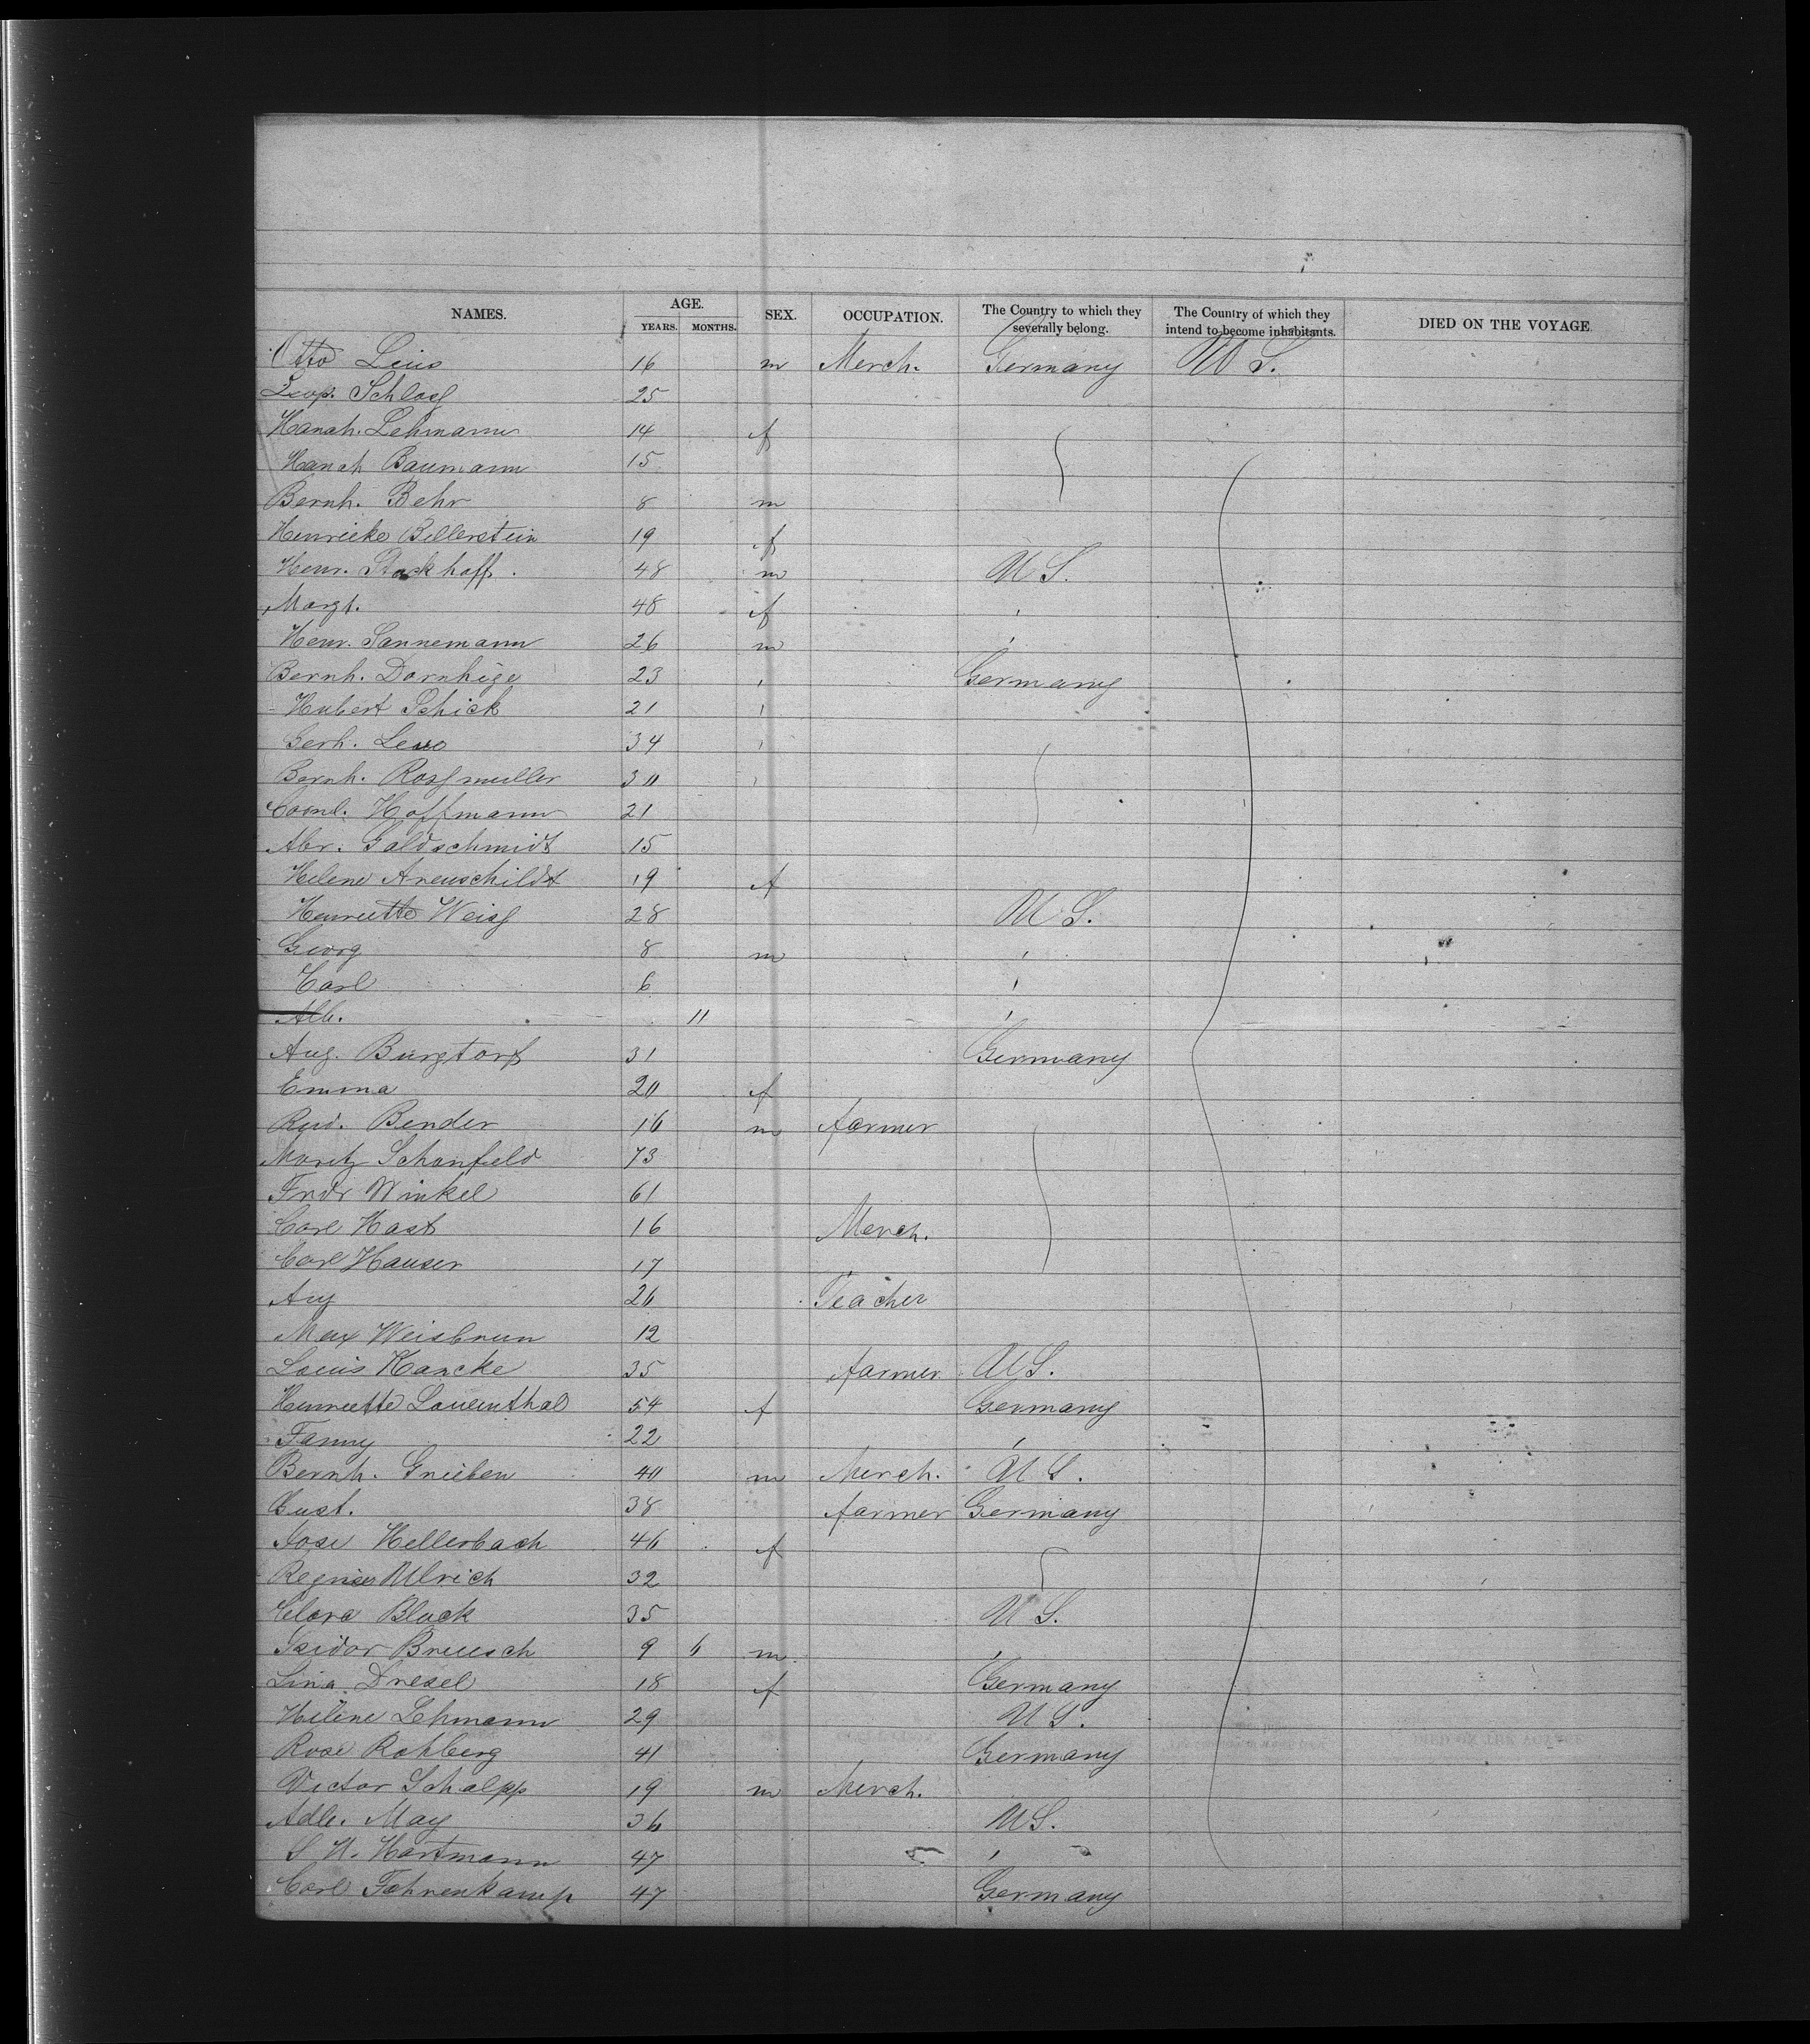 NAMES. AGE. YEARS. MONTHS. SEX. OCCUPATION. The Country to which they severally belong. The Country of which they intend to become inhabitants. DIED ON THE VOYAGE
Otto 16 m Merch. Germany U S.
Leop. Schloss 25
Hanah. Lehmann 14 f
Hanah Baumann 15
Bernh. Behr 8 m
Henrieke Billerstein 19 f
Henr. Stockhoff. 48 m U S.
Margt. 48 f '
Henr. Sannemann 26 m '
Bernh. Dornhege 23 ' Germany
Hubert Schick 21 '
Gerh. 34 '
Bernh. Rossmuller 30 '
Hoffmann 21
Abr. Goldschmidt 15
Helene Arenschildt 19 f
Henriette Weiss 28 U S.
Georg 8 m '
Carl 6 '
Alb. 11 '
Aug. Burgtorf 31 Germany
Emma 20 f
Rud. Bender 16 m farmer
Moritz Schonfeld 73
Frdr Winkel 61
Carl Hast 16 Merch.
Carl Hauser 17 '
Aug 26 Teacher
Max Weisbrun 12
Louis Hancke 35 farmer U S.
Henriette Louenthal 54 f Germany
Fanny 22 '
Bernh. Grieben 40 m Merch. U S.
Gust. 38 farmer Germany
Jose Hellerbach 46 f
Ulrich 32
Clara Block 35 U S.
Isidor Breusch 9 6 m '
Lina Dresel 18 f Germany
Helene Lehmann 29 U S.
Rose Rohberg 41 Germany
Victor Schalpp 19 m Merch.
Adlb. May 36 U S.
S H. Hartmann 47 '
Carl Fahrenkamp 47 Germany